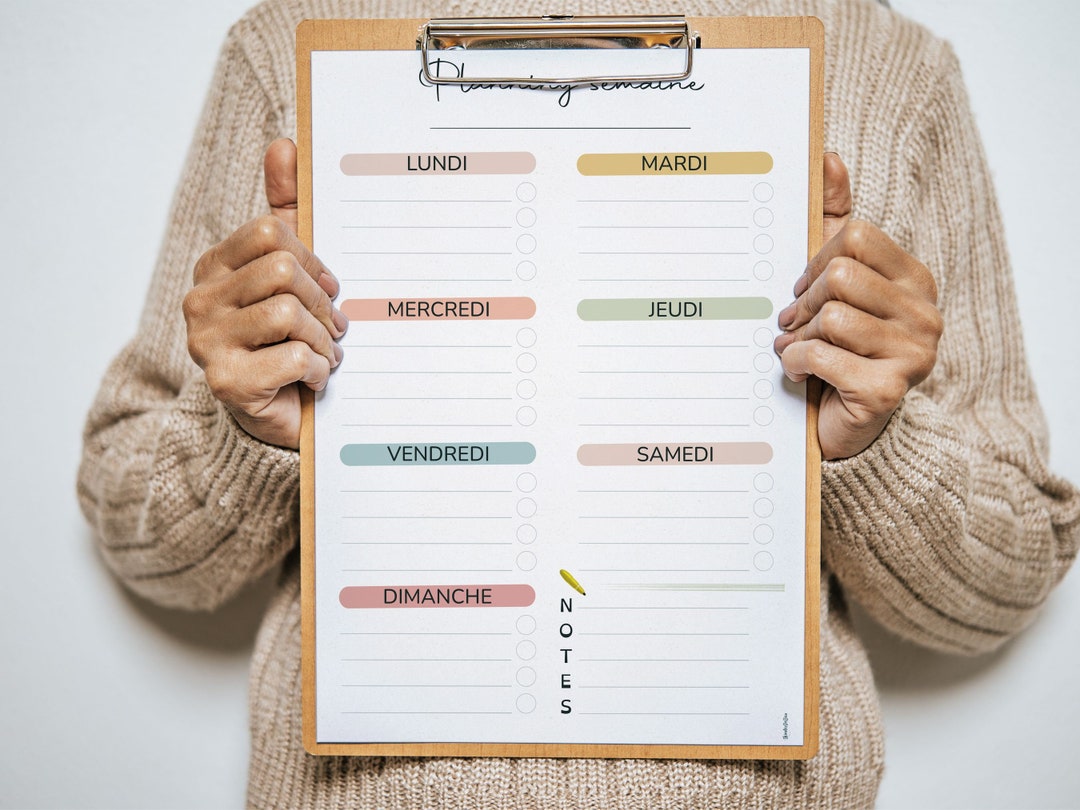 Planning semaine
LUNDI
MARDI
MERCREDI
JEUDI
VENDREDI
SAMEDI
DIMANCHE
NOTES